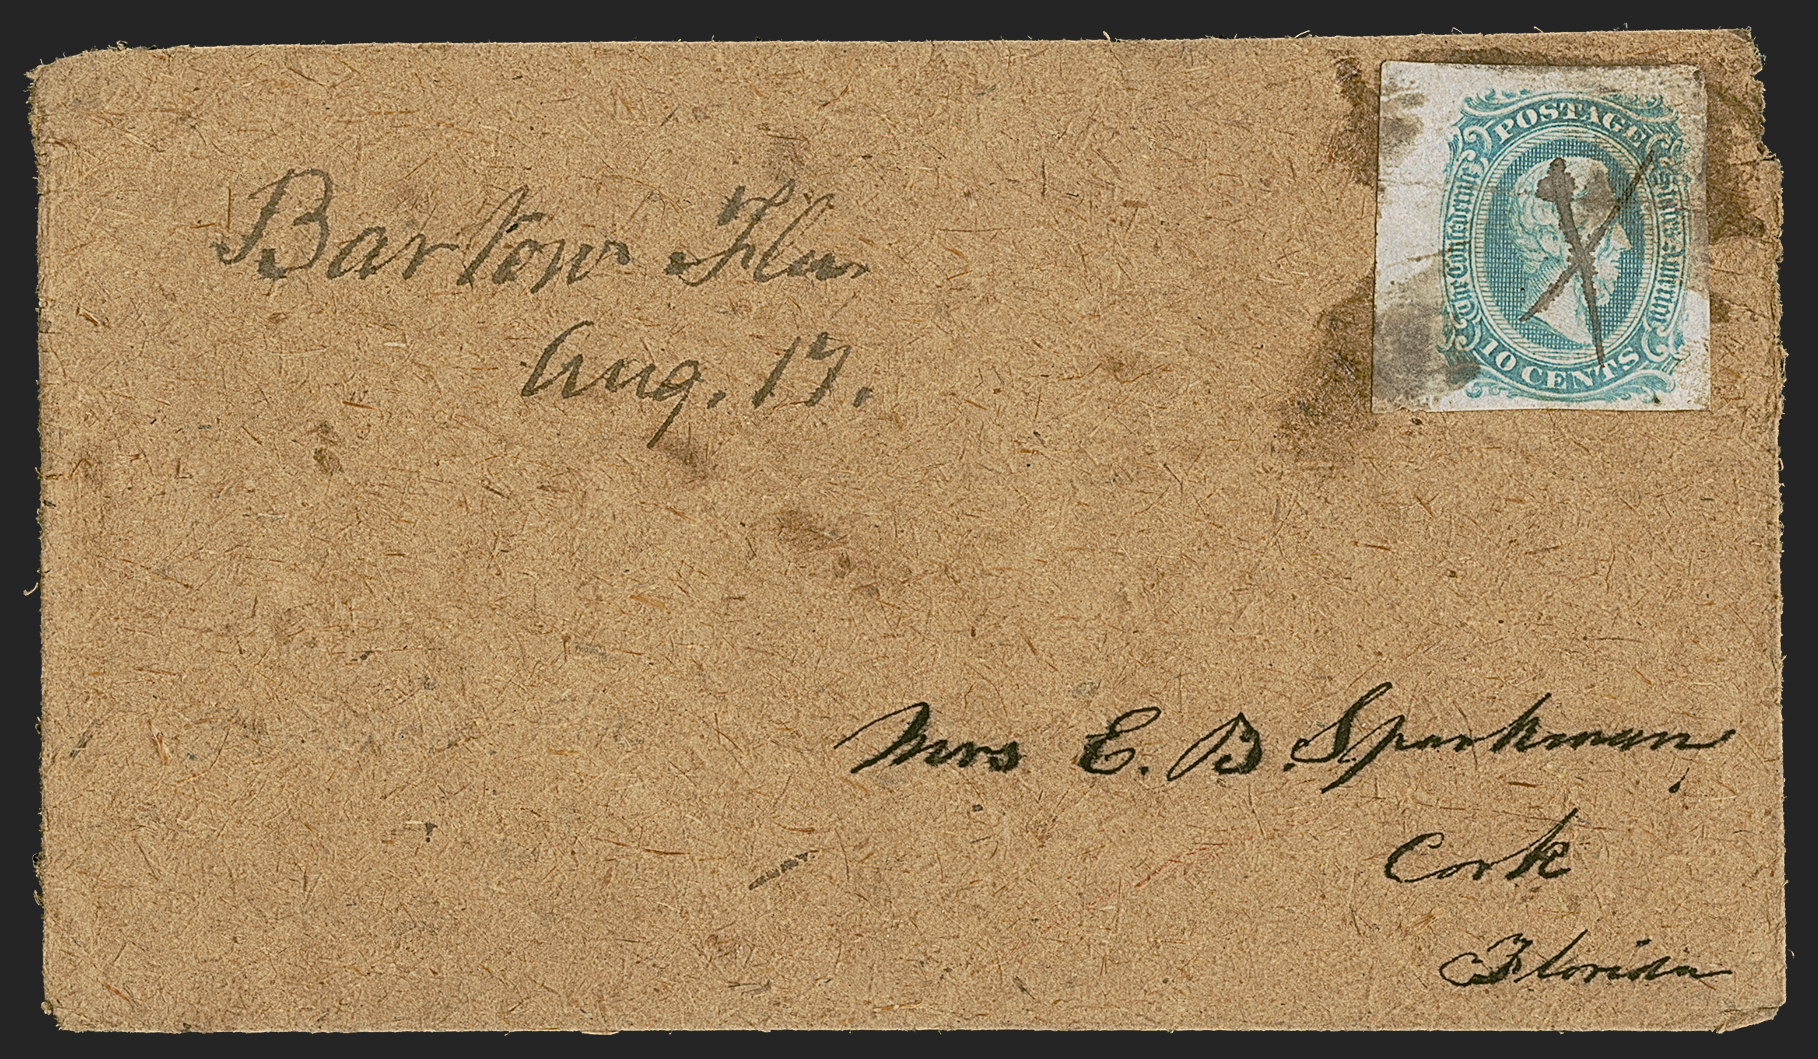 Bartow Fla.
Aug. 17.
POSTAGE
The Confederate
States of America
10 CENTS
Mrs E. B. Sparkman,
Cork
Florida